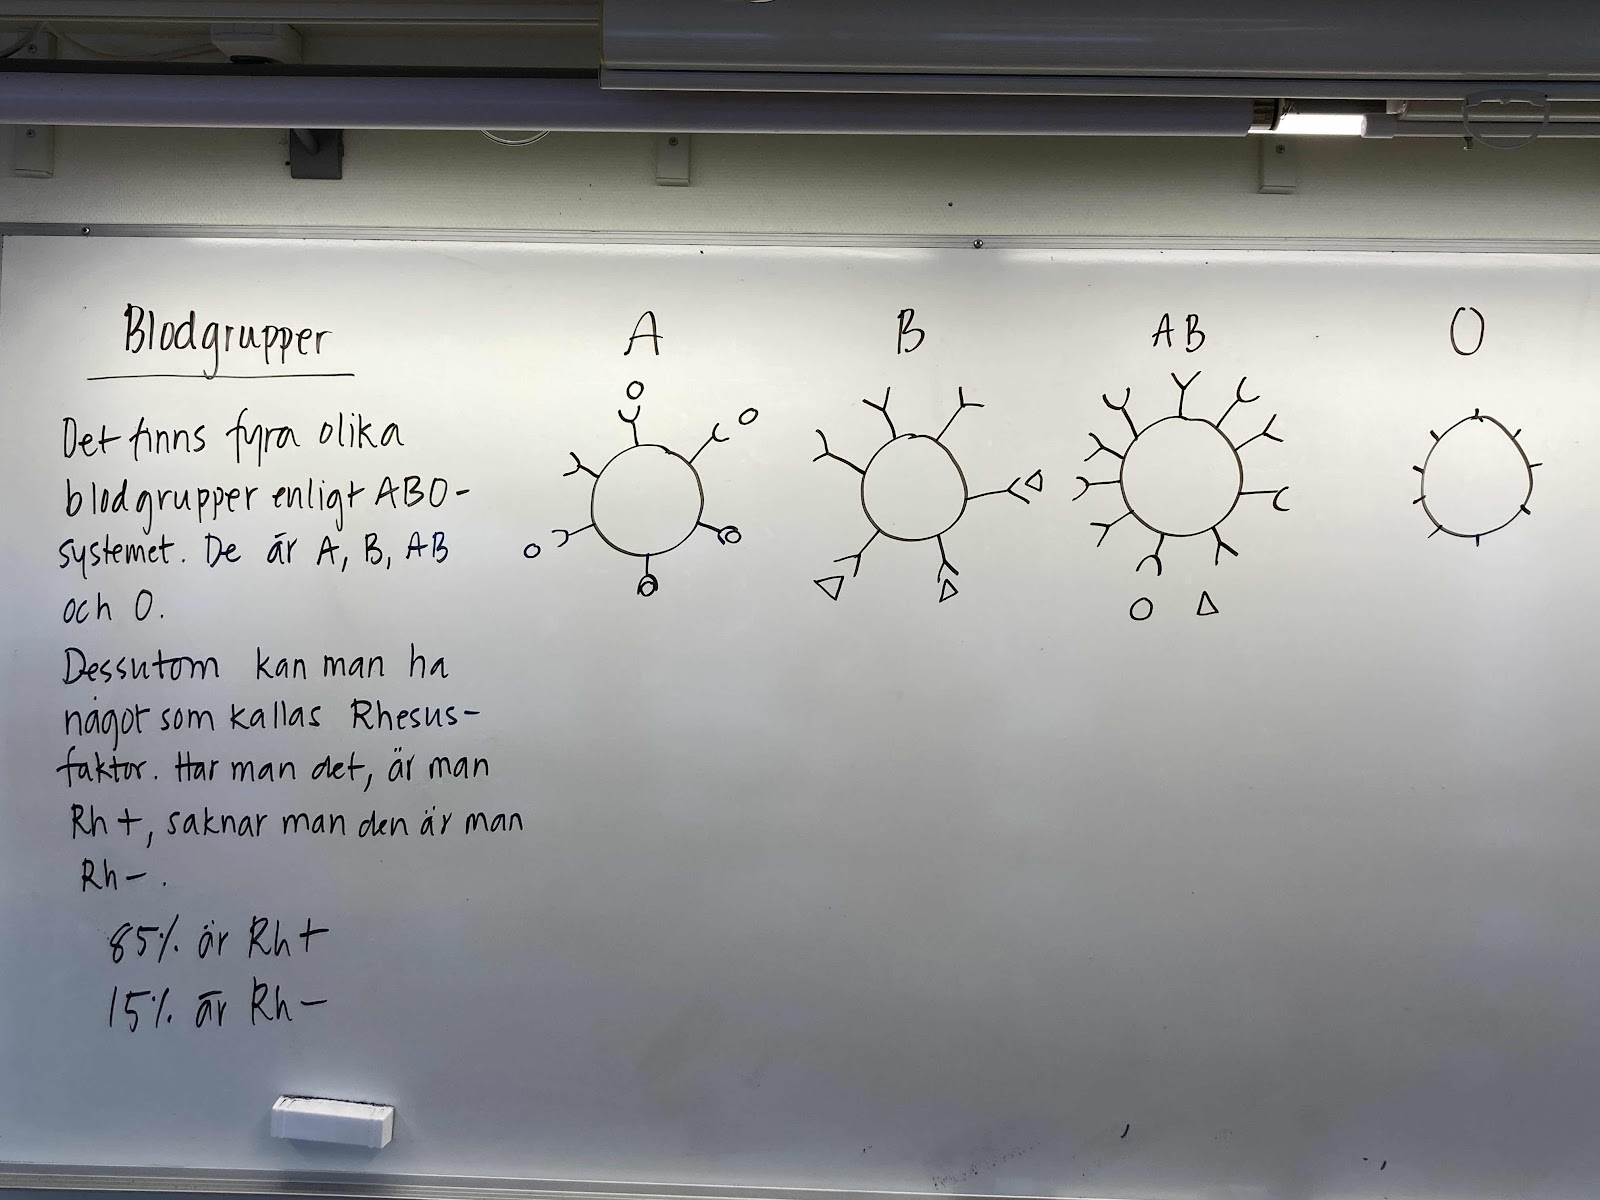 Blodgrupper
Det finns fyra olika
blodgrupper enligt ABO-
systemet. De är A, B, AB
och O.
Dessutom kan man ha
något som kallas Rhesus-
faktor. Har man det, är man
Rh+, saknar man den är man
Rh-.
85% är Rh+
15% är Rh-
A
B
AB
O